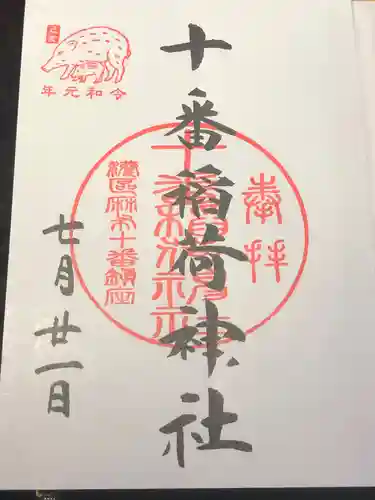 己亥
令和元年
十番稲荷神社
奉拝
十番稲荷神社
港区麻布十番鎮座
七月廿一日